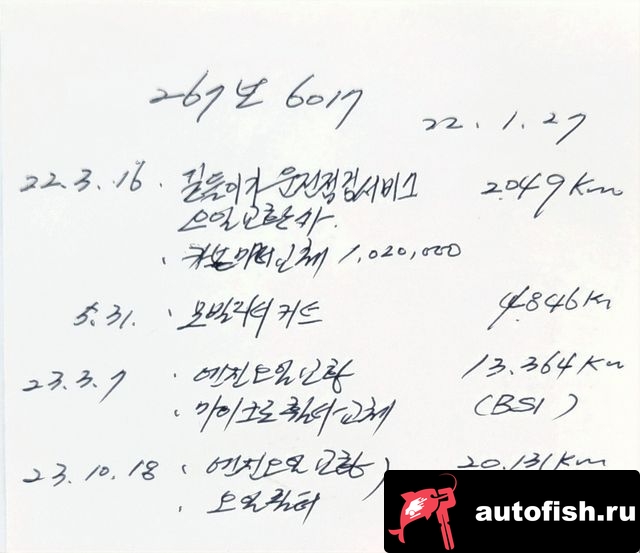 267보 6017
22.1.27
22.3.16 . 길들이기 운전점검서비스 2.049 Km
오일교환
. 카본 미러 교체 1,020,000
5.31. . 모빌리티 키트 4.846 Km
23.3.7 . 엔진오일교환 13.364 Km
. 마이크로 휠터 교체 (BSI)
23.10.18 . 엔진오일교환) 20.131 Km
. 오일휠터
autofish.ru